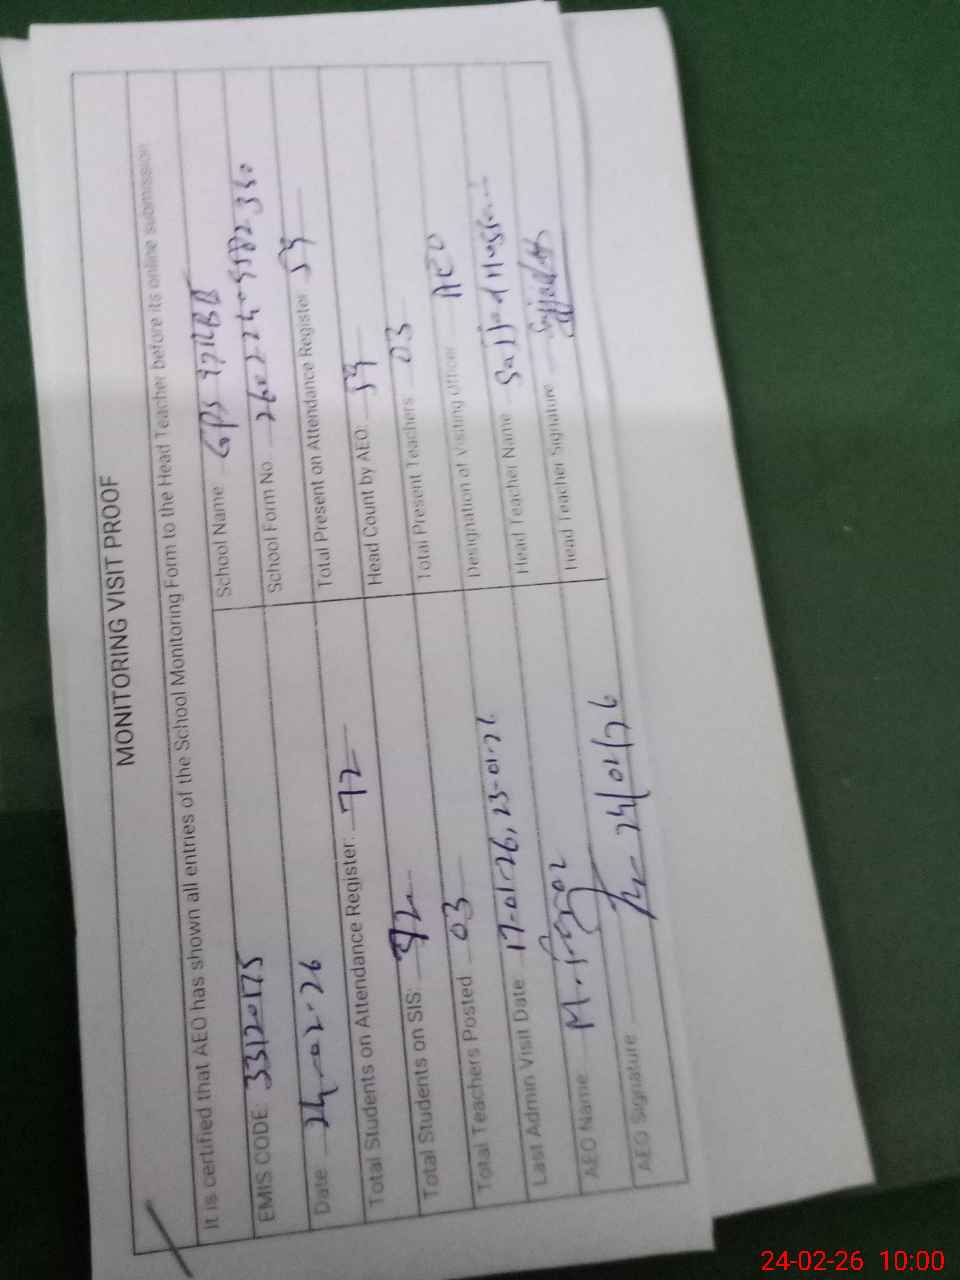 MONITORING VISIT PROOF
It is certified that AEO has shown all entries of the School Monitoring Form to the Head Teacher before its online submission
EMIS CODE: 33120175
School Name GPS
Date 24-02-26
School Form No
Total Students on Attendance Register: 72
Total Present on Attendance Register 59
Total Students on SIS: 72
Head Count by AEO: 59
Total Teachers Posted 03
Total Present Teachers 03
Last Admin Visit Date 17-01-26, 23-01-26
Designation of Visiting Officer AEO
AEO Name M.
Head Teacher Name Sajjad Hussain
AEO Signature
Head Teacher Signature
24-02-26 10:00